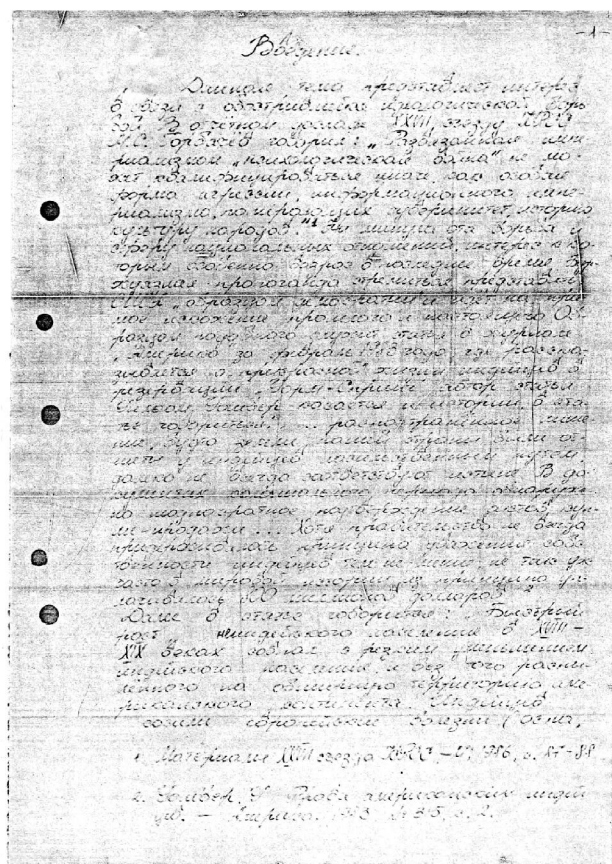 -1-
Введение.
Данная тема представляет интерес
в связи с обострившейся идеологической борь-
бой. В отчётном докладе XXVII съезду КПСС
М.С. Горбачёв говорил: „Развязанная импе-
риализмом „психологическая война" не мо-
жет квалифицироваться иначе как особая
форма агрессии, информационного импе-
риализма, попирающих суверенитет, историю
культуру народов"1 Не минула эта борьба и
сферу национальных отношений, интерес к ко-
торым особенно возрос в последнее время. Бур-
жуазная пропаганда стремится представить
США
прошлого и настоящего
статья в журнале
„Америка" за февраль 1983 года, где расска-
зывается о „прекрасной" жизни индейцев в
резервации „Уорм-Спрингс" автор статьи
Уильям касается и истории, в ста-
тье говорится: „... распространённое мне-
ние, будто земли нашей страны были от-
няты у индейцев насильственным путём,
далеко не всегда соответствует истине. В до-
многократное подтверждение актов куп-
ли-продажи... Хотя правительство не всегда
придерживалось принципа уважения собст-
венности индейцев тем не менее, не так уж
часто в мировой истории из принципа уп-
лачивалось 800 миллионов долларов"2
Далее в статье говорится: „Быстрый
рост неиндейского населения в XVIII-
XIX веках совпал с резким уменьшением
индейского населения, и без того рассея-
нного на обширной территории аме-
риканского континента. Индейцев
косили европейские болезни (оспа,
1. Материалы XXVII съезда КПСС, 1986, с. 87-88
2. У. Права американских индей-
цев. - Америка. 1983 № 315, с. 2.